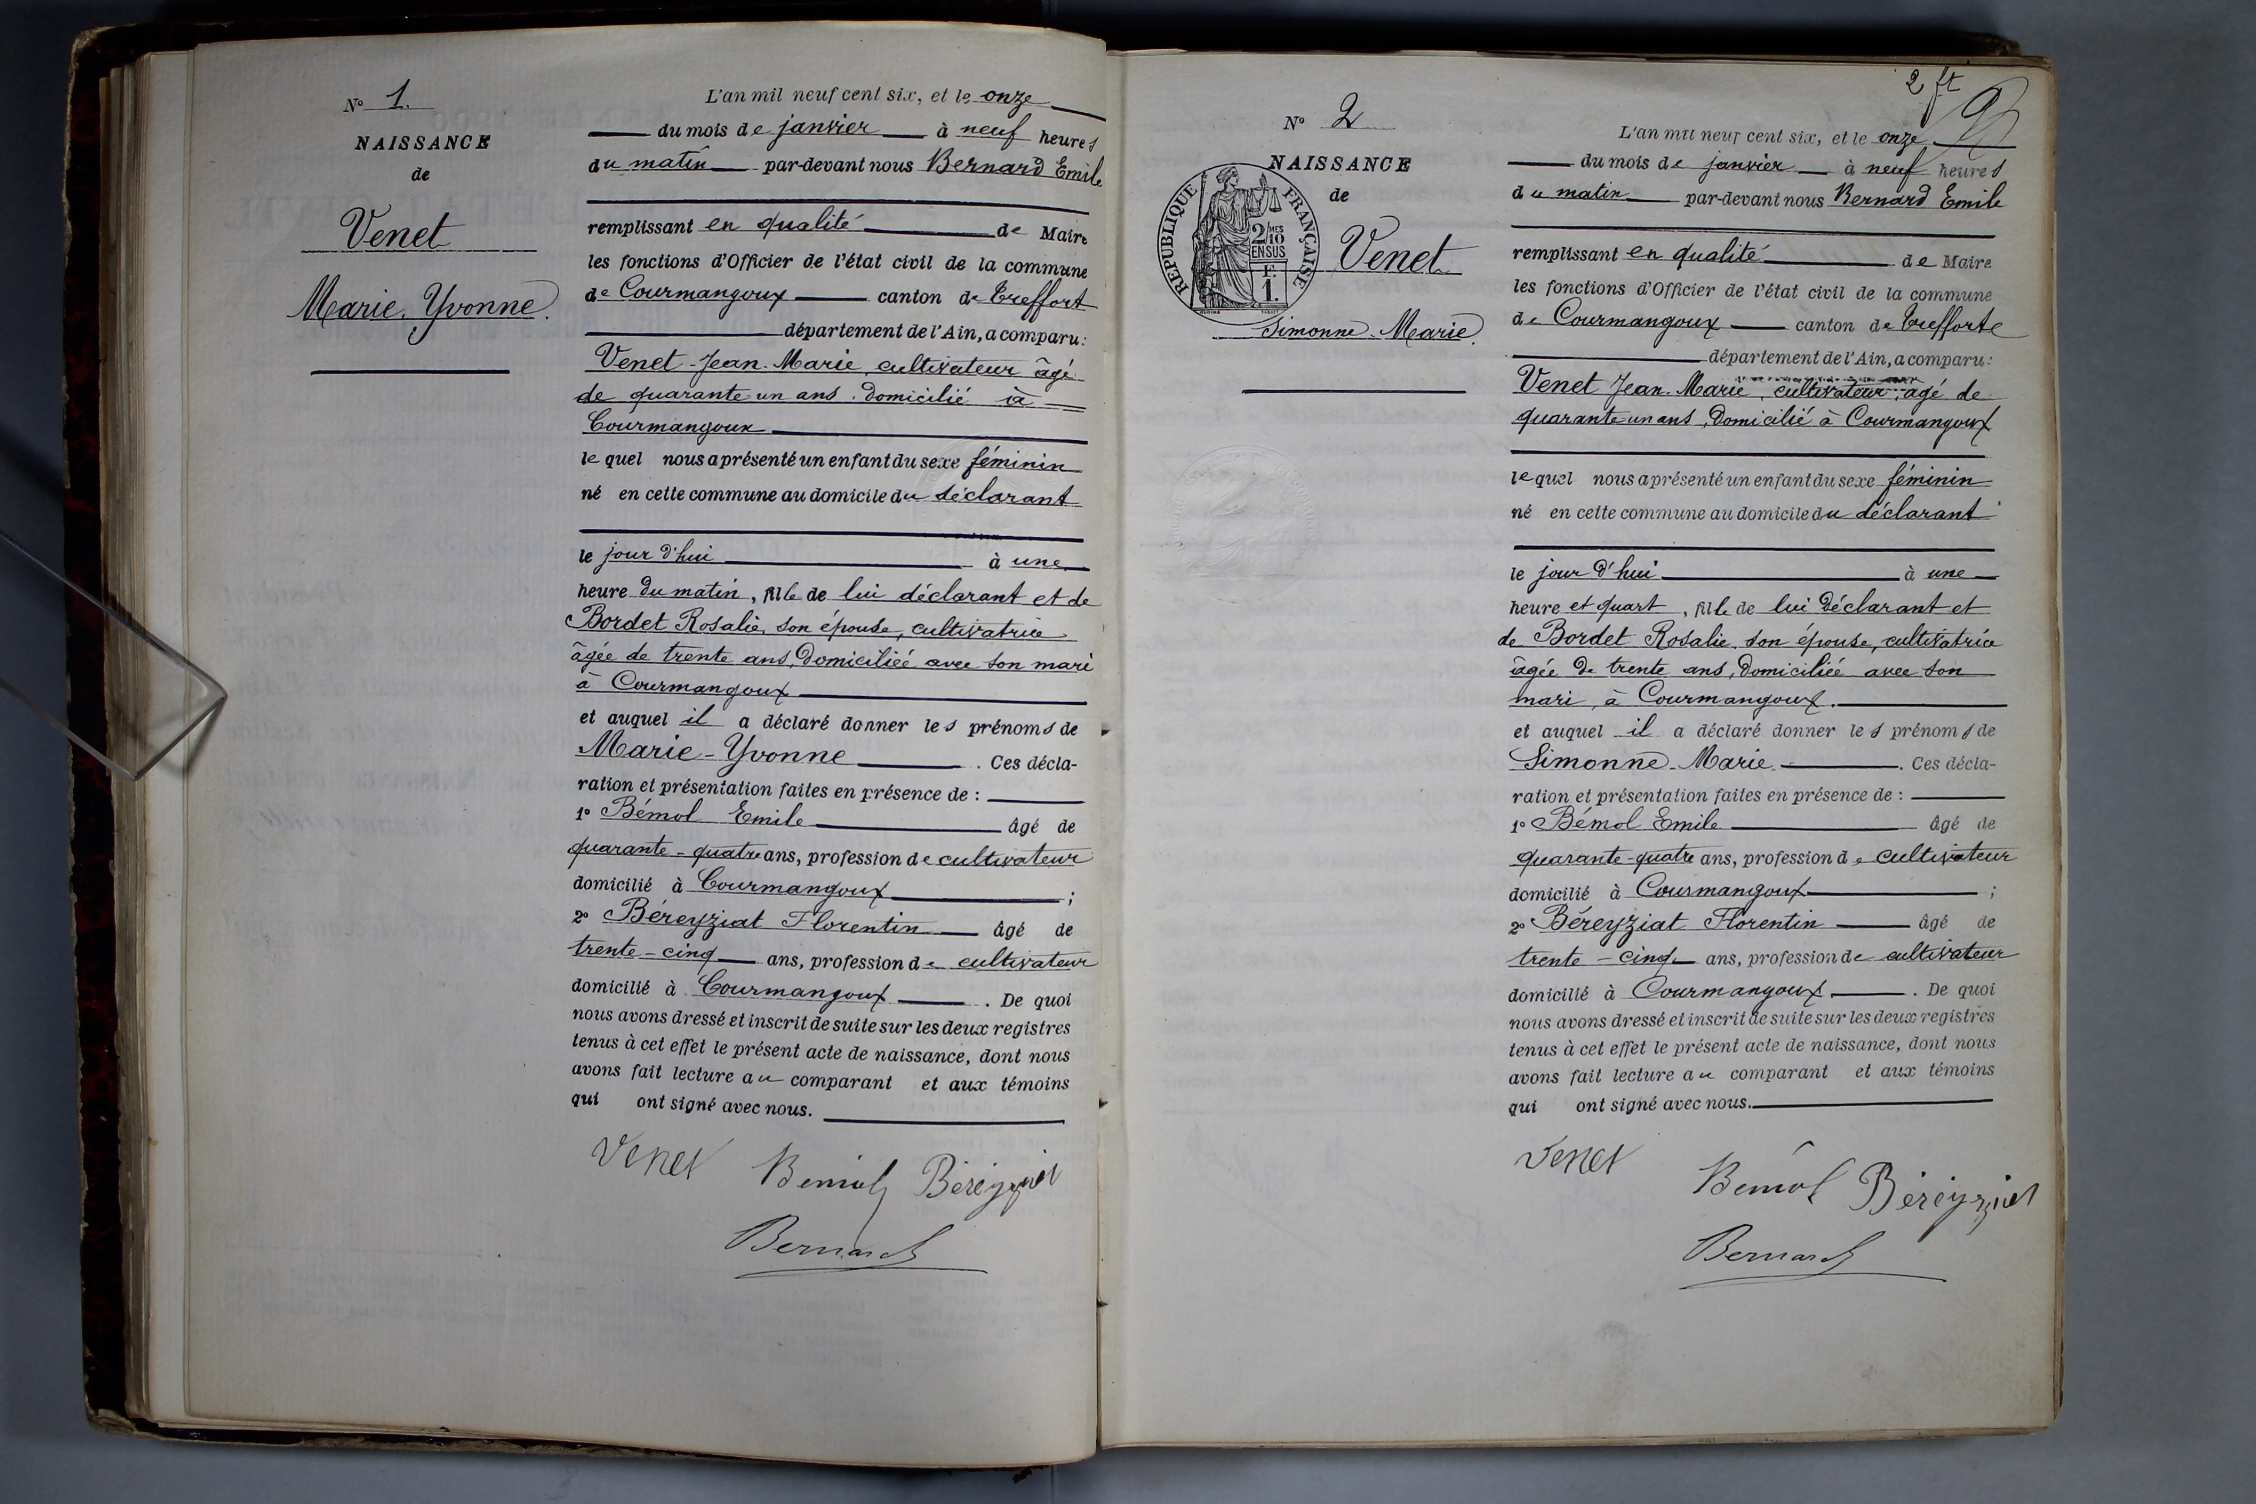 N° 1.
NAISSANCE
de
Venet
Marie-Yvonne.
L'an mil neuf cent six, et le onze
du mois de janvier à neuf heures
du matin par-devant nous Bernard Emile
remplissant en qualité de Maire
les fonctions d'Officier de l'état civil de la commune
de Courmangoux canton de Treffort
département de l'Ain, a comparu:
Venet Jean-Marie, cultivateur âgé
de quarante un ans, domicilié à
Courmangoux
lequel nous a présenté un enfant du sexe féminin
né en cette commune au domicile du déclarant
le jour d'hui à une
heure du matin, fille de lui déclarant et de
Bordet Rosalie, son épouse, cultivatrice
âgée de trente ans, domiciliée avec son mari
à Courmangoux
et auquel il a déclaré donner les prénoms de
Marie-Yvonne . Ces décla-
ration et présentation faites en présence de :
1° Bémol Emile âgé de
quarante-quatre ans, profession de cultivateur
domicilié à Courmangoux ;
2° Béreyziat Florentin âgé de
trente-cinq ans, profession de cultivateur
domicilié à Courmangoux . De quoi
nous avons dressé et inscrit de suite sur les deux registres
tenus à cet effet le présent acte de naissance, dont nous
avons fait lecture au comparant et aux témoins
qui ont signé avec nous.
Venet Bémol Béreyziat
Bernard
2 ft
N° 2
NAISSANCE
de
REPUBLIQUE FRANÇAISE
2/10 MES
EN SUS
F.
1.
Venet
Simonne-Marie.
L'an mil neuf cent six, et le onze
du mois de janvier à neuf heures
du matin par-devant nous Bernard Emile
remplissant en qualité de Maire
les fonctions d'Officier de l'état civil de la commune
de Courmangoux canton de Treffort
département de l'Ain, a comparu:
Venet Jean-Marie, cultivateur, âgé de
quarante un ans, domicilié à Courmangoux
lequel nous a présenté un enfant du sexe féminin
né en cette commune au domicile du déclarant
le jour d'hui à une
heure et quart, fille de lui déclarant et
de Bordet Rosalie, son épouse, cultivatrice
âgée de trente ans, domiciliée avec son
mari, à Courmangoux.
et auquel il a déclaré donner les prénoms de
Simonne-Marie . Ces décla-
ration et présentation faites en présence de :
1° Bémol Emile âgé de
quarante-quatre ans, profession de cultivateur
domicilié à Courmangoux ;
2° Béreyziat Florentin âgé de
trente-cinq ans, profession de cultivateur
domicilié à Courmangoux . De quoi
nous avons dressé et inscrit de suite sur les deux registres
tenus à cet effet le présent acte de naissance, dont nous
avons fait lecture au comparant et aux témoins
qui ont signé avec nous.
Venet Bémol Béreyziat
Bernard